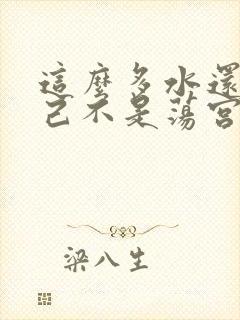 這麼多水還
己不是蕩宮
梁八生